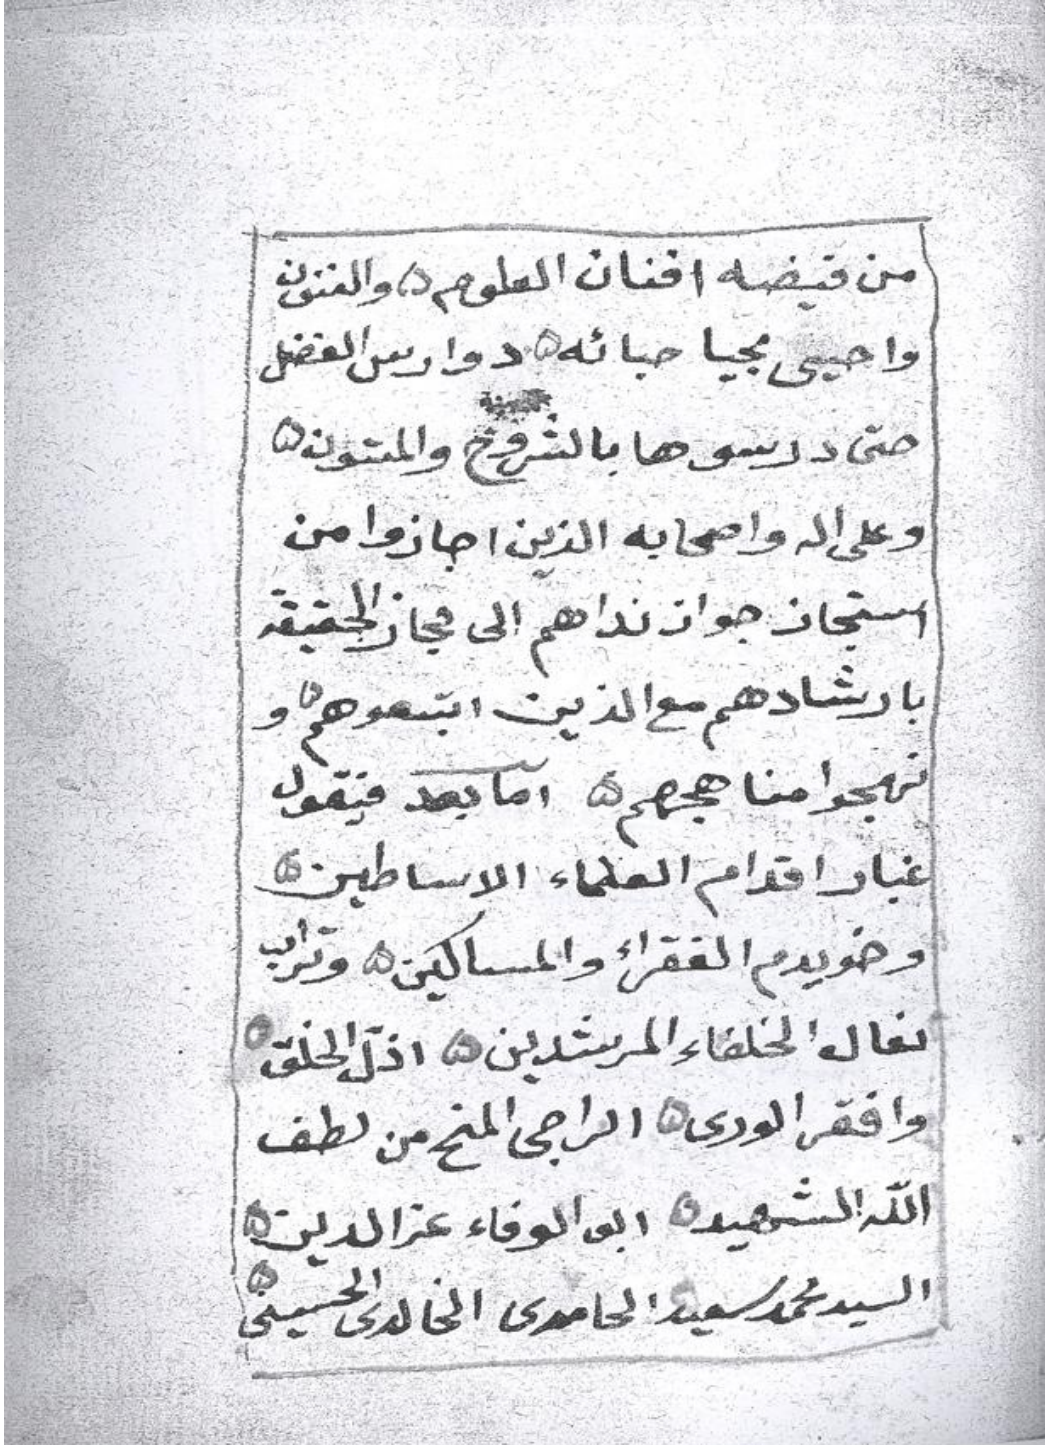 من فيضه افنان العلوم ۵ والفنون
واحيى بمحيا حبائه ۵ دوارس الفضل
حتى درسوها بالشروح والمتون ۵
وعلى اله واصحابه الذين اجازوا من
استجاز جواز نداهم الى مجاز الحقيقة
بارشادهم مع الذين اتبعوهم ۵ و
نهجوا مناهجهم ۵ امّا بعد فيقول
غبار اقدام العلماء الاساطين ۵
وخويدم الفقراء والمساكين ۵ وتراب
نعال الخلفاء المرشدين ۵ اذلّ الخلق ۵
وافقر الورى ۵ الراجى المنح من لطف
اللّه الشهيد ۵ ابو الوفاء عز الدين ۵
السيد محمد سعيد الحامدى الخالدى الحسينى ۵